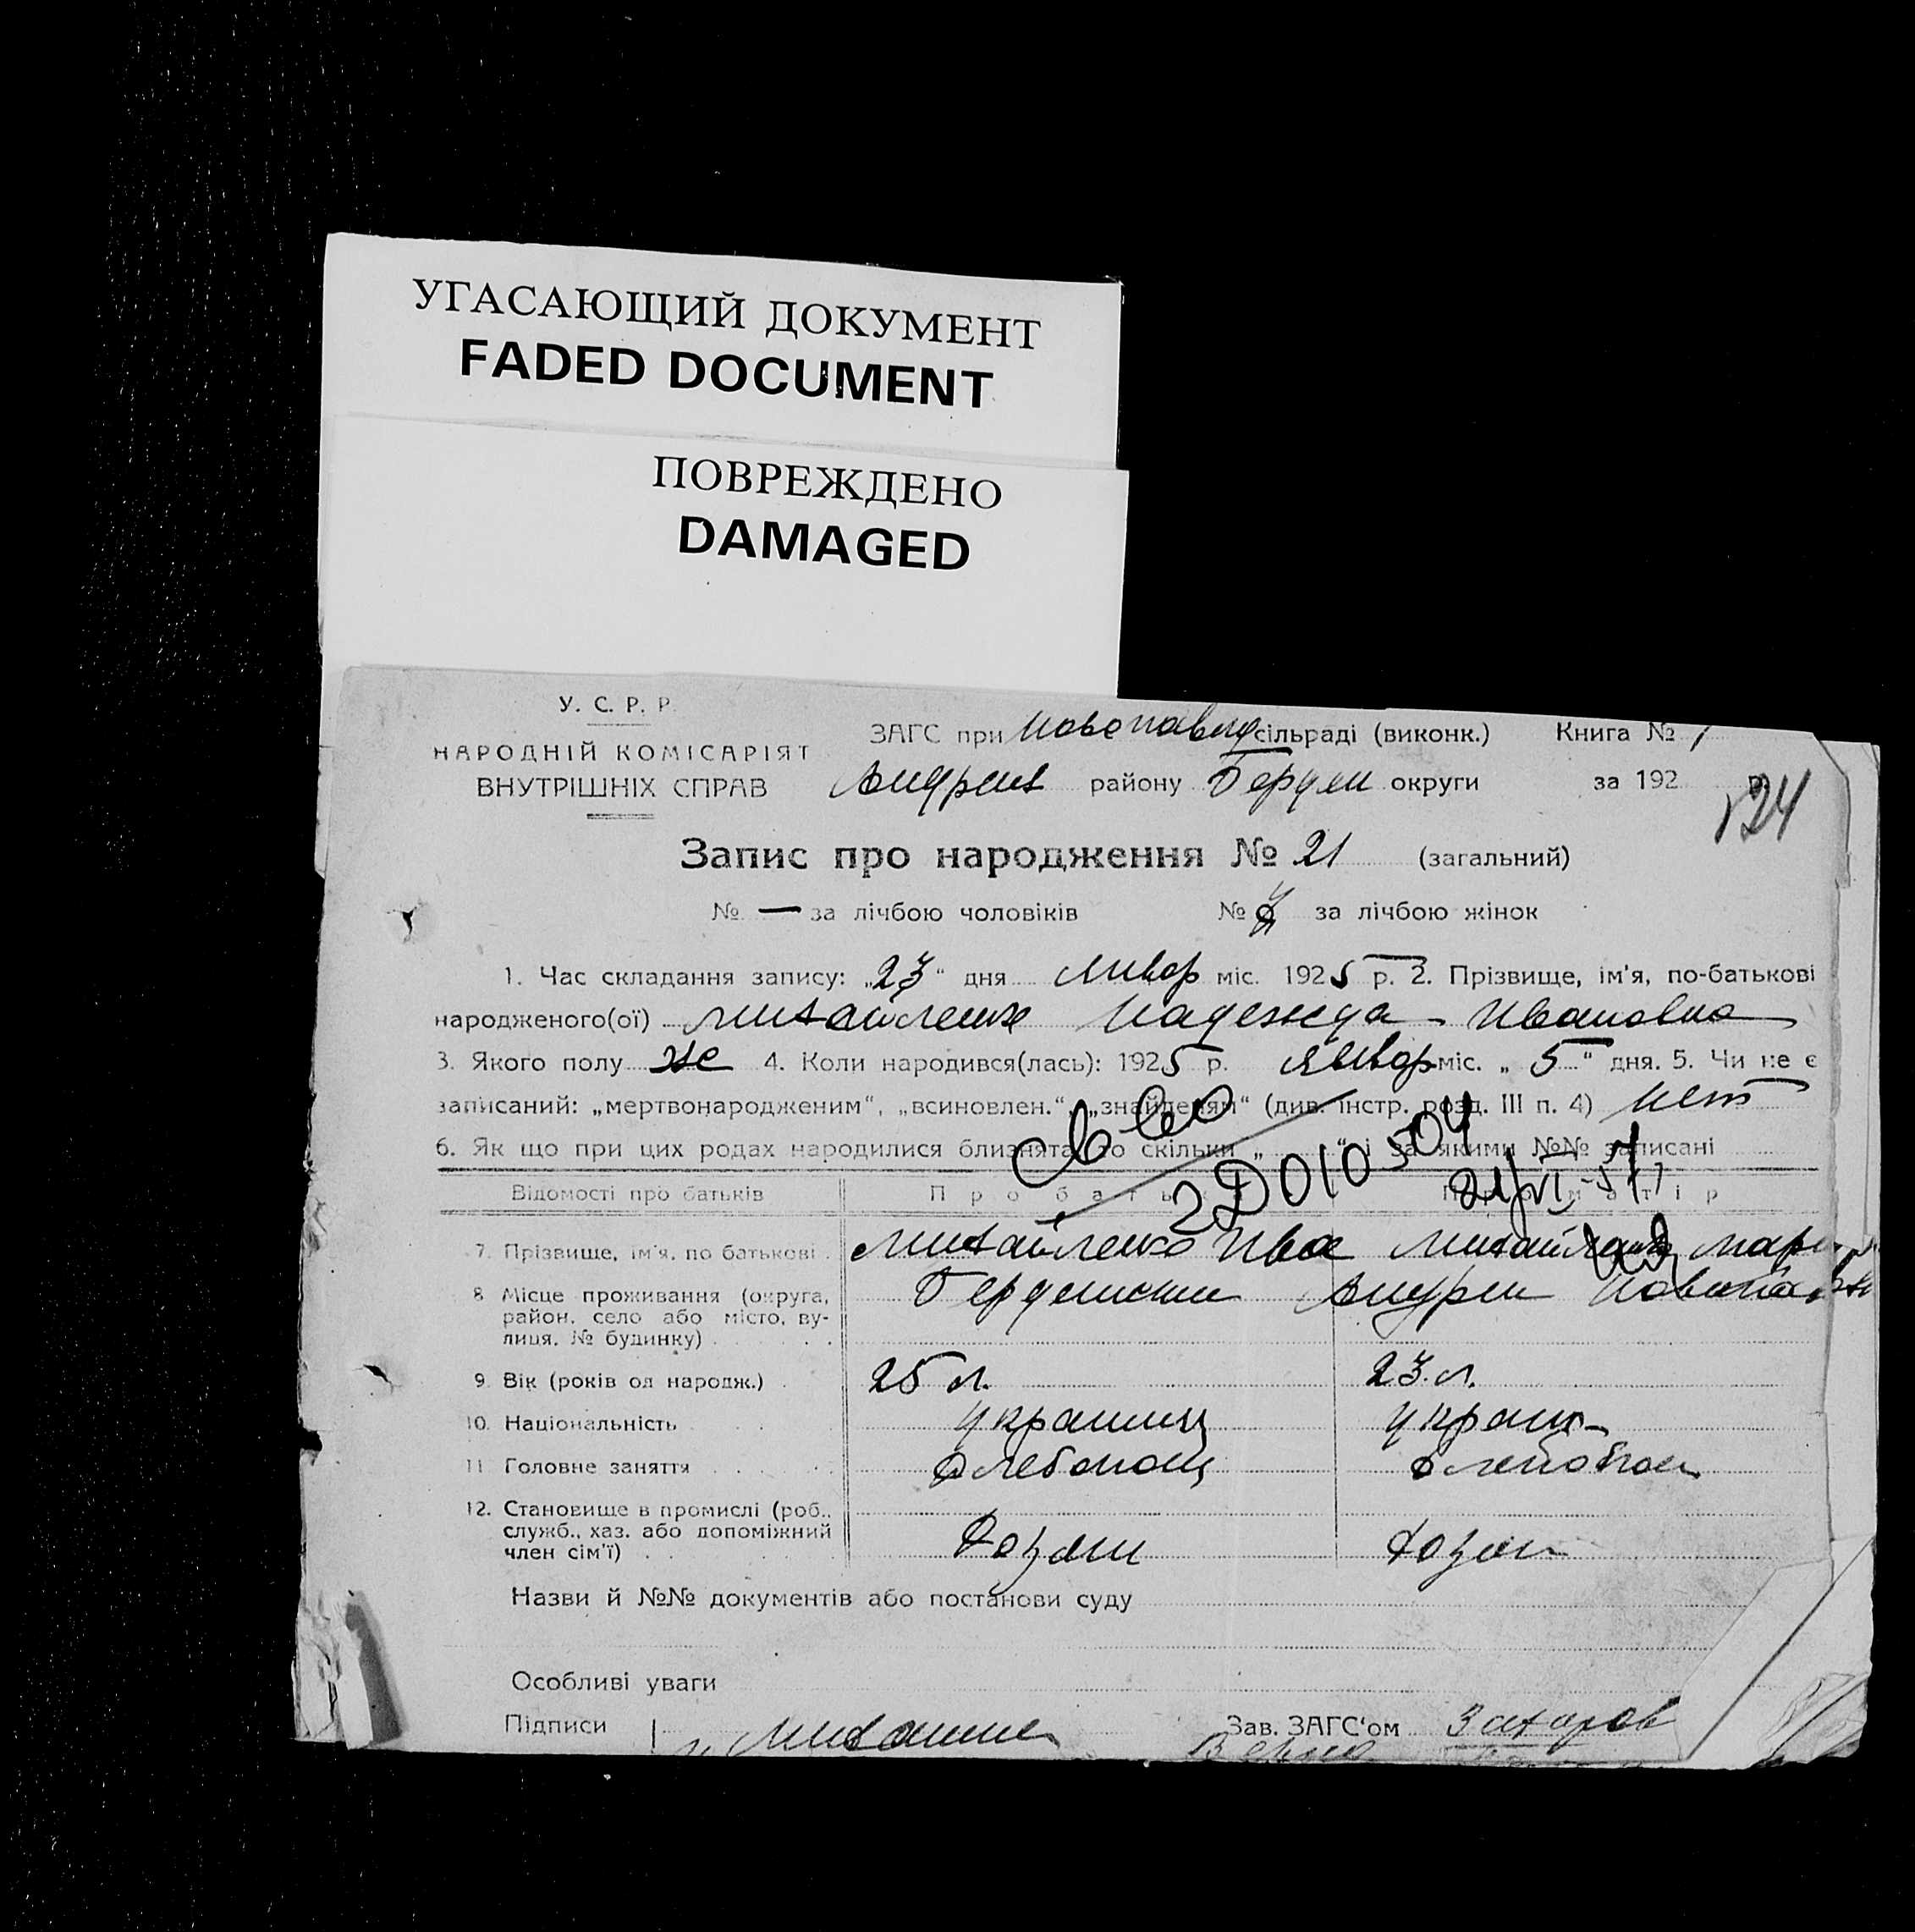 УГАСАЮЩИЙ ДОКУМЕНТ
FADED DOCUMENT
ПОВРЕЖДЕНО
DAMAGED
У. С. Р. Р.
НАРОДНІЙ КОМІСАРІЯТ
ВНУТРІШНІХ СПРАВ
ЗАГС при Новопавл сільраді (виконк.) Книга № 1
Андреев району Бердян округи за 192 р.
124
Запис про народження № 21 (загальний)
№ — за лічбою чоловіків № за лічбою жінок
1. Час складання запису: „23“ дня Январ міс. 1925 р. 2. Прізвище, ім'я, по-батькові
народженого(ої) Михайленко Надежда Ивановна
3. Якого полу же 4. Коли народився(лась): 1925 р. Январ міс. „5“ дня. 5. Чи не є
записаний: „мертвонародженим“, „всиновлен.“, „знайденям“ (див. інстр. розд. III п. 4) нет
6. Як що при цих родах народилися близнята, то скільки „ “ і за якими №№ записані
Св во
2Д 010504
21/VI-
Відомості про батьків Про батька Про матір
7. Прізвище, ім'я, по батькові Михайленко Ива Михайленко Мари
8. Місце проживання (округа, Бердянский Андреи Новопав
район, село або місто, ву-
лиця, № будинку)
9. Вік (років од народж.) 25 л. 23 л.
10. Національність украинц украин
11. Головне заняття хлебопаш хлебопаш
12. Становище в промислі (роб.,
служб., хаз. або допоміжний
член сім'ї) хозяин хозяи
Назви й №№ документів або постанови суду
Особливі уваги
Підписи Зав. ЗАГС'ом Захаров
Верно